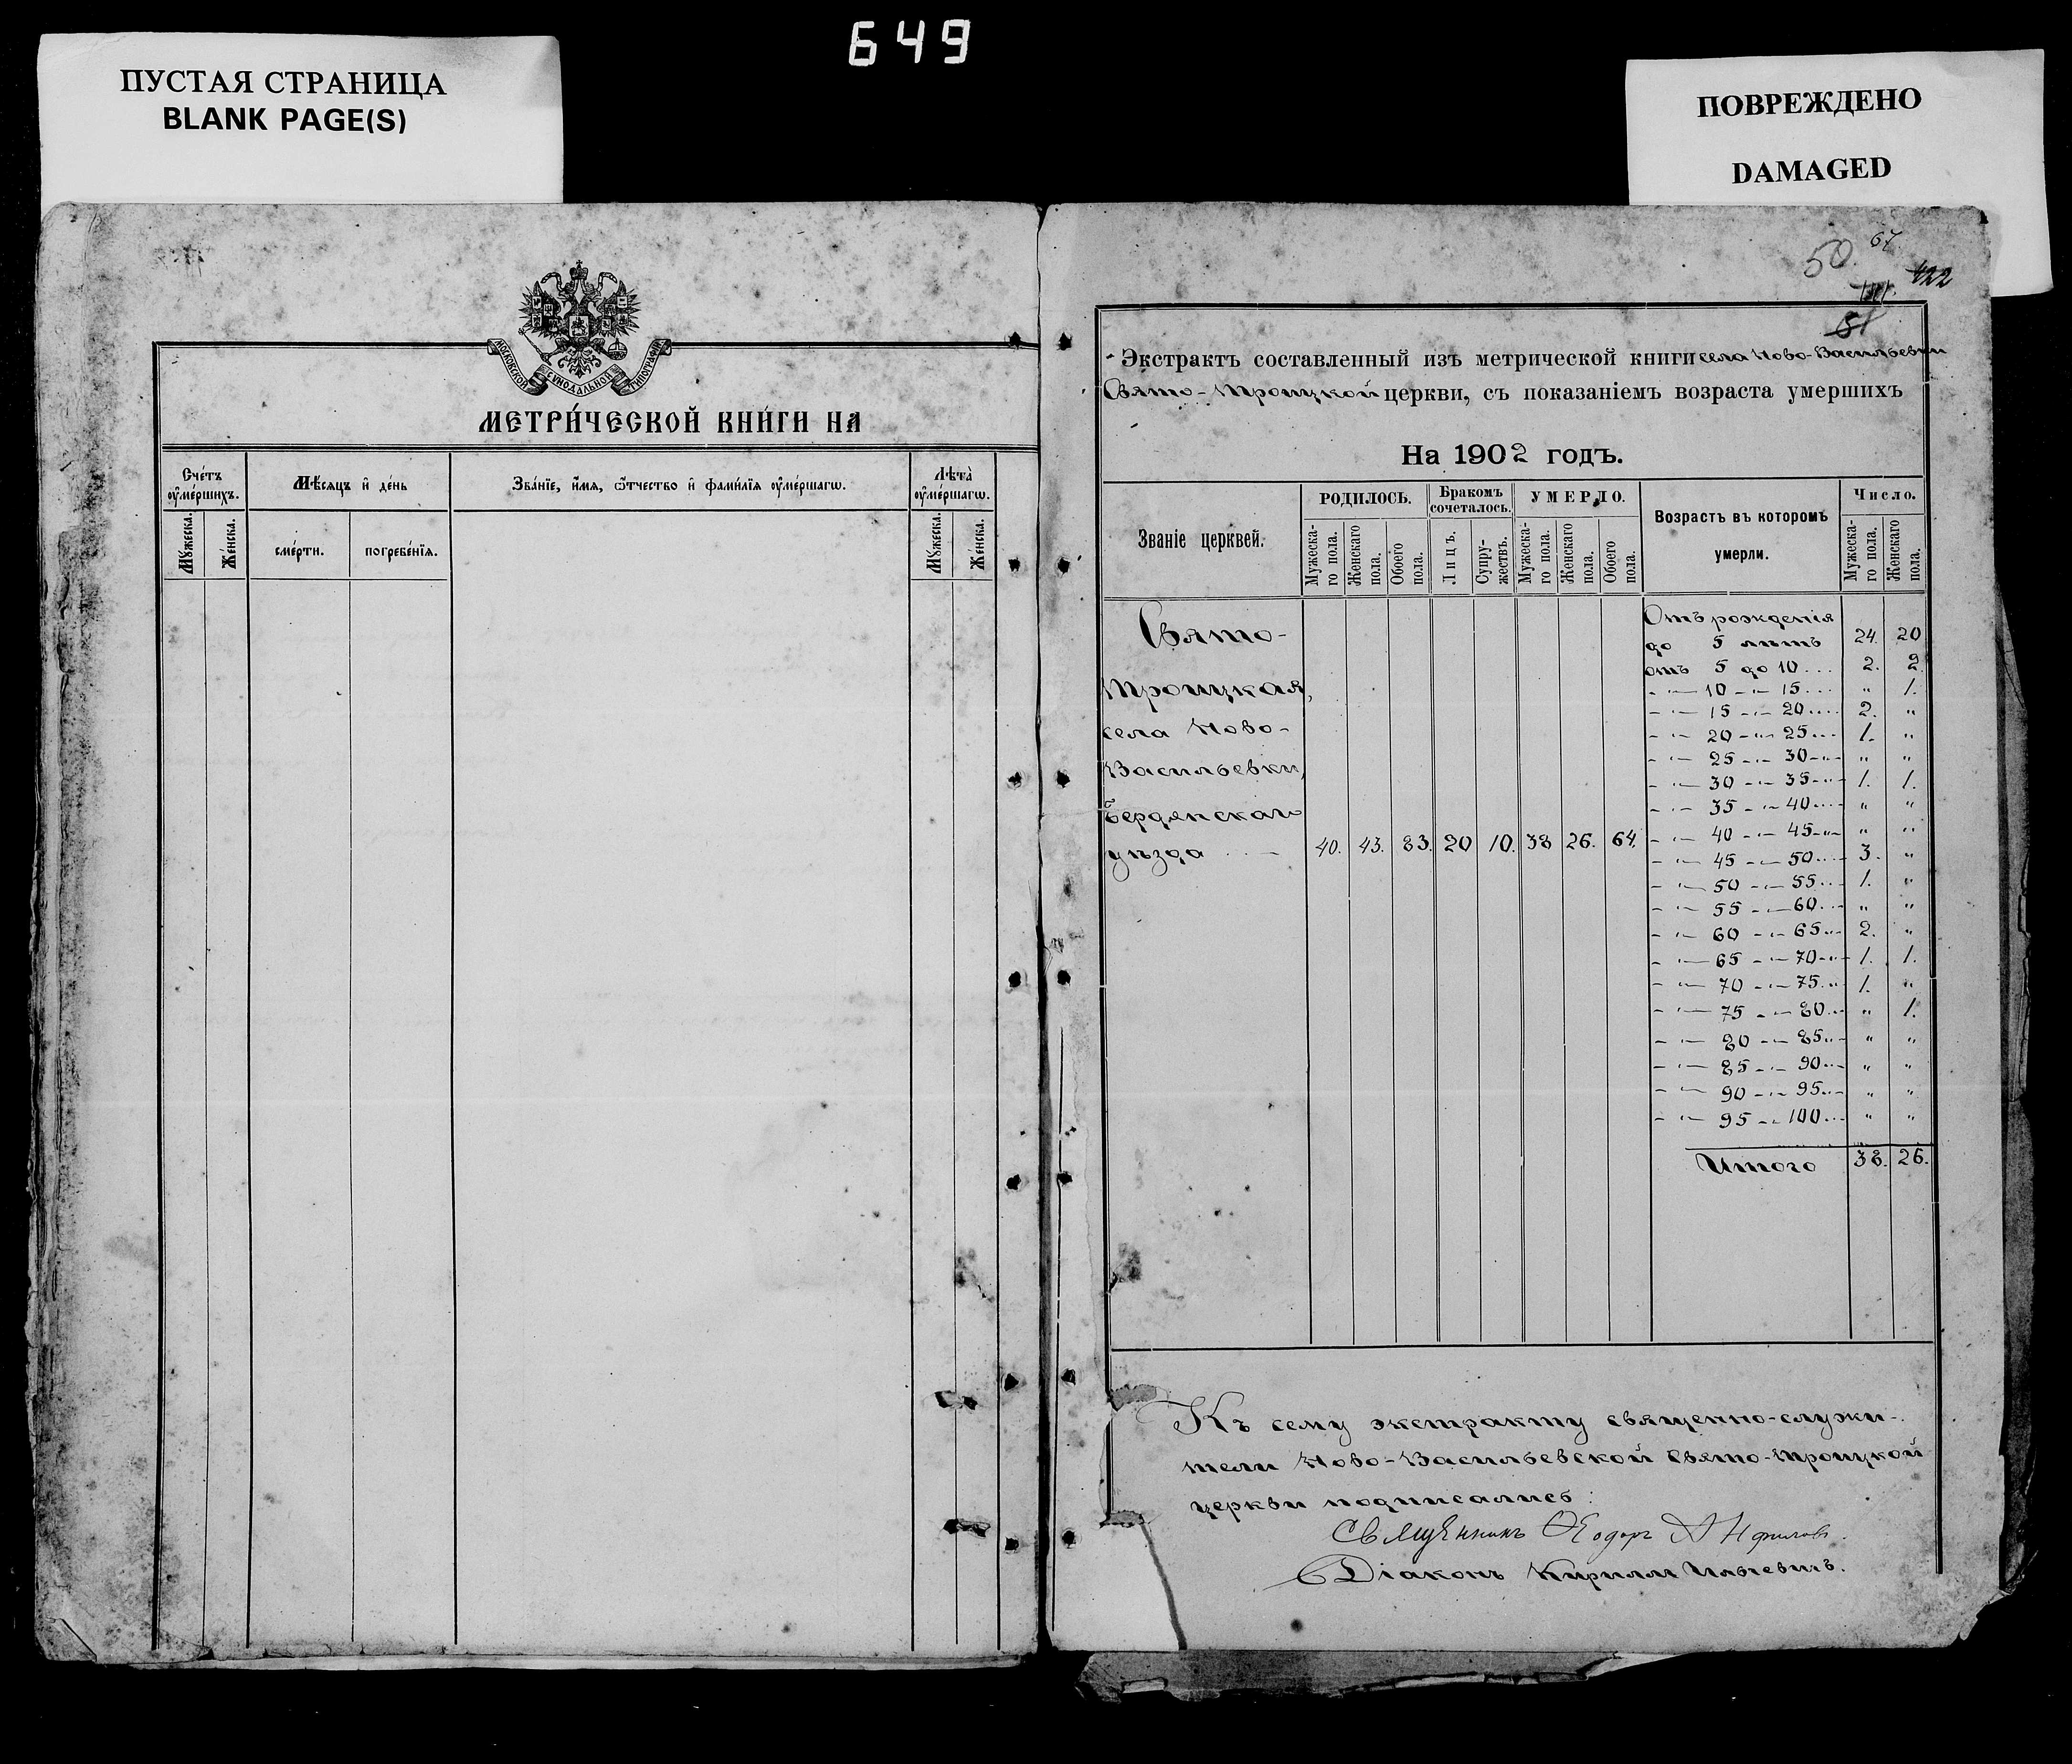 649
ПУСТАЯ СТРАНИЦА
BLANK PAGE(S)
ПОВРЕЖДЕНО
DAMAGED
МОСКОВСКОЙ СѴНОДАЛЬНОЙ ТИПОГРАФІИ
МЕТРИ́ЧЕСКОЙ КНИ́ГИ НА
Сче́тъ ᲂу҆ме́ршихъ.
Мѣ́сяцъ и҆ де́нь
Зва́нїе, и҆́мя, ѻ҆́тчество и҆ фами́лїя ᲂу҆ме́ршагѡ.
Лѣ́та ᲂу҆ме́ршагѡ.
Мꙋ́жеска.
Же́нска.
сме́рти.
погребе́нїя.
Мꙋ́жеска.
Же́нска.
50
67
422
51
Экстрактъ составленный изъ метрической книги села Ново-Васильевки
Свято-Троицкой церкви, съ показаніемъ возраста умершихъ
На 1902 годъ.
Званіе церквей.
РОДИЛОСЬ.
Бракомъ сочеталось.
УМЕРЛО.
Возрастъ въ которомъ умерли.
Число.
Мужескаго пола.
Женскаго пола.
Обоего пола.
Лицъ.
Супружествъ.
Мужескаго пола.
Женскаго пола.
Обоего пола.
Мужескаго пола.
Женскаго пола.
Свято-
Троицкая,
села Ново-
Васильевки,
Бердянскаго
уѣзда 40. 43. 83. 20 10. 38 26. 64.
Отъ рожденія
до 5 лѣтъ 24. 20
отъ 5 до 10.... 2. 2.
- " — 10 - " — 15... " 1.
- " — 15 - " — 20.... 2. "
- " — 20 - " — 25... 1. "
- " — 25 - " — 30 - " - " "
- " — 30 - " — 35 - " - 1. 1.
- " — 35 - " — 40... " "
- " — 40 - " — 45 - " - " "
- " — 45 - " — 50... 3. "
- " — 50 - " — 55... 1. "
- " — 55 - " — 60... " "
- " — 60 - " — 65... 2. "
- " — 65 - " — 70 - " - 1. 1.
- " — 70 - " — 75... 1. "
- " — 75 - " — 80... " 1.
- " — 80 - " — 85... " "
- " — 85 - " — 90... " "
- " — 90 - " — 95... " "
- " — 95 - " — 100... " "
Итого 38. 26.
Къ сему экстракту священно-служи-
тели Ново-Васильевской Свято-Троицкой
церкви подписались:
Священникъ Ѳеодоръ
Діаконъ Кириллъ Ильевичъ.